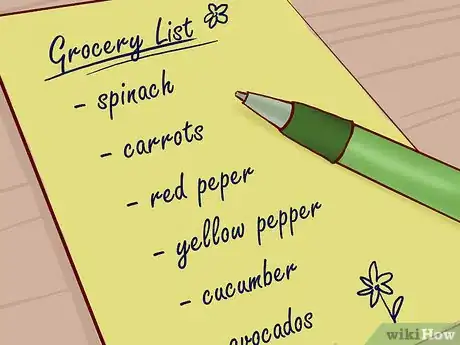 Grocery List
- spinach
- carrots
- red peper
- yellow pepper
- cucumber
avocados
wikiHow